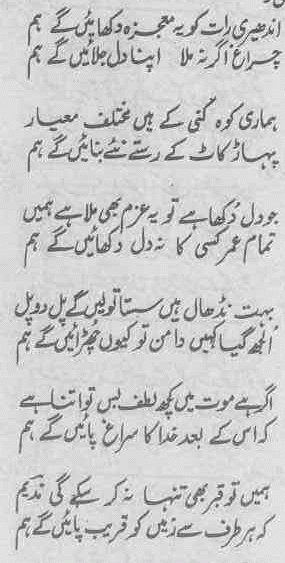 اندھیری رات کو یہ معجزہ دکھائیں گے ہم
چراغ اگر نہ ملا اپنا دل جلائیں گے ہم
ہماری کوہ کنی کے ہیں مختلف معیار
پہاڑ کاٹ کے رستے نئے بنائیں گے ہم
جو دل دُکھا ہے تو یہ عزم بھی ملا ہے ہمیں
تمام عمر کسی کا نہ دل دکھائیں گے ہم
بہت نڈھال ہیں سستا تو لیں گے پل دو پل
اُلجھ گیا کہیں دامن تو کیوں چھڑائیں گے ہم
اگر ہے موت میں کچھ لطف بس تو اتنا ہے
کہ اس کے بعد خدا کا سراغ پائیں گے ہم
ہمیں تو قبر بھی تنہا نہ کر سکے گی ندیمؔ
کہ ہر طرف سے زمیں کو قریب پائیں گے ہم